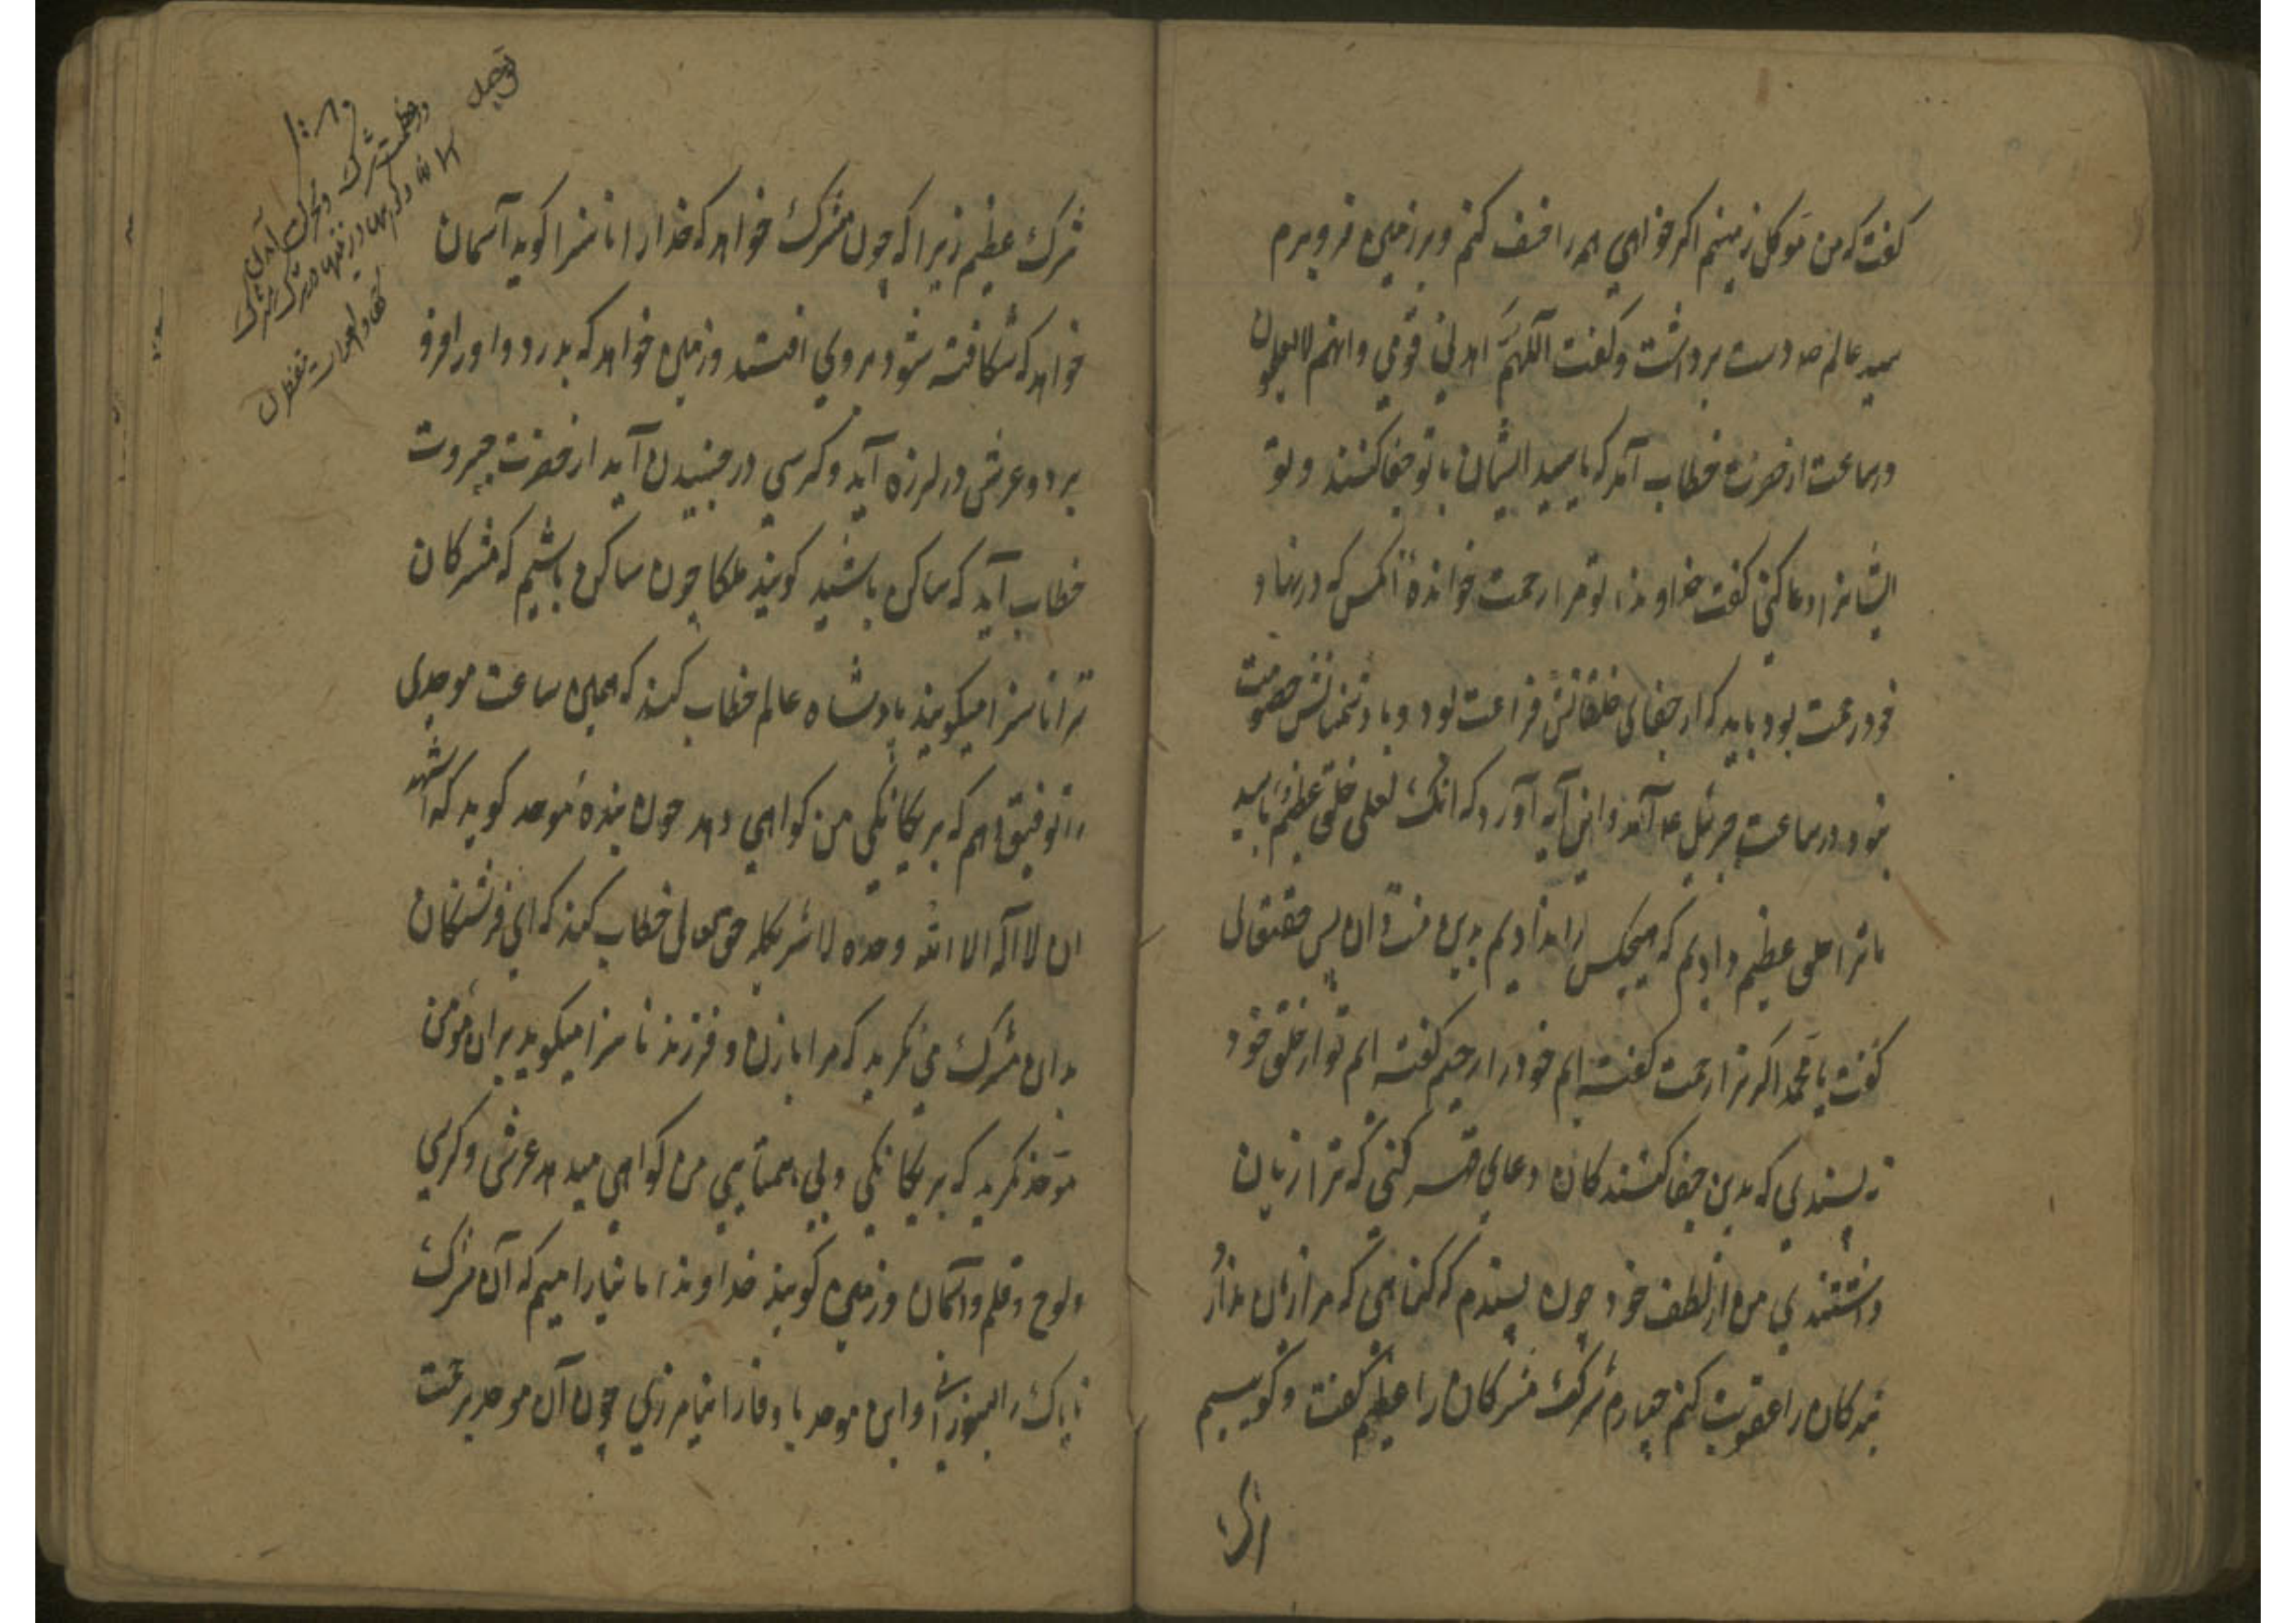 گفت که من موکل زمینم اگر خواهی همه را خسف کنم و بر زمین فرو برم
سید عالم صه دست برداشت و گفت اللهم اهد لی قومی وانهم لایعلمون
درساعت از حضرت خطاب آمد که یا سید ایشان با تو جفا کنند و تو
ایشانرا دعا کنی گفت خداوندا تو مرا رحمت خوانده آنکس که در نهاد
خود رحمت بود باید که از جفای خلقانش فراغت بود و با دشمنانش خصومت
نبود درساعت جبرئیل عم آمد و این آیه آورد که انک لعلی خلق عظیم یا سید
ما ترا خلقی عظیم دادیم که هیچکس را ندادیم بدین منت دان پس حقتعالی
گفت یا محمد اگر ترا رحمت گفته ایم خود را رحیم گفته ایم تو از خلق خود
نه پسندی که بدین جفا کنندکان دعای قهر کنی که ترا زیان
داشتندی من از لطف خود چون پسندم که گناهی که مرا زیان ندارد
بندکان را عقوبت کنم چهارم شرک مشرکان را عظیم گفت و کوییم
شرک عظیم زیرا که چون مشرک خواهد که خدار ا ناسزا کوید آسمان
خواهد که شکافته شود بروی افتد و زمین خواهد که بدرد و او را فرو
برد و عرش در لرزه آید و کرسی در جنبیدن آید از حضرت جبروت
خطاب آید که ساکن باشید کویند ملکا چون ساکن باشیم که مشرکان
ترا ناسزا میکویند پادشاه عالم خطاب کند که همین ساعت موحدی
را توفیق دهم که بر یکانکی من کواهی دهد چون بنده موحد کوید که اشهد
ان لا اله الا الله وحده لا شریکله حق تعالی خطاب کند که ای فرشتکان
بدان مشرک می نکرید که مرا با زن و فرزند ناسزا میکوید بران مؤمن
موحد نکرید که بر یکانکی و بی همتایی من کواهی میدهد عرش و کرسی
و لوح و قلم و آسمان و زمین کویند خداوندا ما نیارامیم که آن مشرک
ناپاک را بسوزی و این موحد با وفا را نیامرزی چون آن موحد برحمت